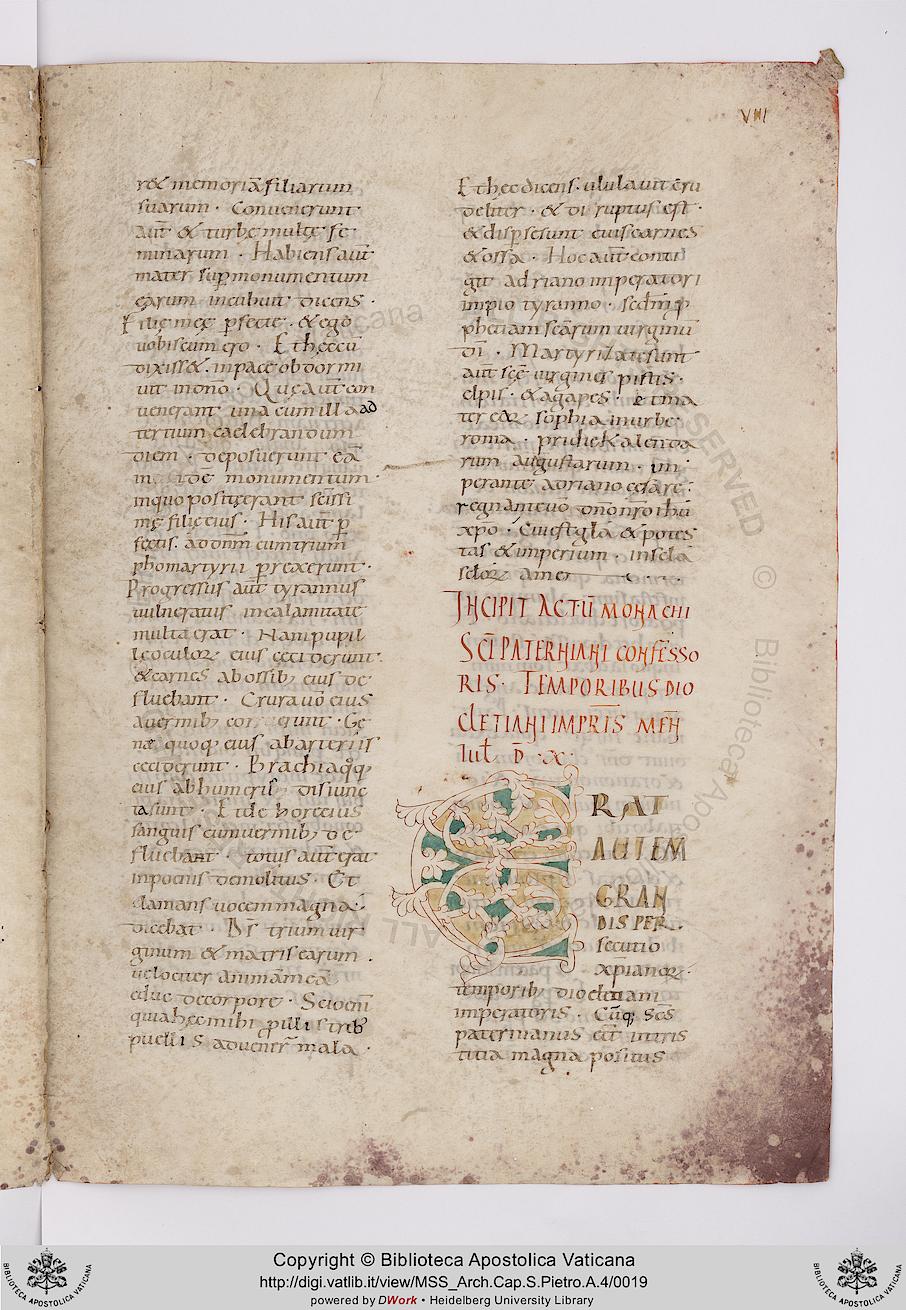 VIII
r& memoriā filiarum
suarum · Convenerunt
aut̄ & turbę multę fe
minarum · Habiens aut̄
mater sup monumentum
earum incubuit dicens ·
Filię męę · & ego
vobiscum ero · Et hęc cū
dixiss& · in pace obdormi
vit in dn̄o · Quę aut̄ con
venerant una cum illa ad
tertium caelebrandum
diem · deposuerunt eā
in monumentum ·
in quo
mę filię eius · His aut̄ p
fectis · ad dn̄m cum trium
phomartyrii p rexerunt ·
Progressus aut̄ tyrannus
vulneratus in calamitate
multa erat · Nam pupil
lę oculoꝝ eius ceciderunt
& carnes ab ossib; eius de
fluebant · Crura uō eius
a vermib; · Ge
nę quoq; eius ab arteriis
ceciderunt · Brachia qq;
eius ab humeris disiunc
ta sunt · Et de corde eius
sanguis cum vermib; de
fluebant · totus aut̄ erat
in podciis demolitus · Et
clamans voce magna
dicebat · Dš trium vir
ginum & matris earum ·
velociter animam eā
educ de corpore · Scio enī
quia hęc mihi p illis trib;
puellis advener̄ mala ·
Et hęc dicens · ululavit cru
deliter · & diruptus est ·
& dispsę sunt eius carnes
& ossa · Hoc aut̄ conti
git adriano imperatori
impio tyranno · secdm p
phetiam scārum virginū
dī · Martyrizatę sunt
aut̄ scę virgines pistis ·
elpis · & agapes · & ma
ter eaꝝ sophia in urbe
roma · pridie Kalenda
rum augustarum · im
perante adriano cesare :
regnante uō dn̄o nr̄o ihū
xpo · Cui est glā & potes
tas & imperium · in secla
secloꝝ amen
INCIPIT ACTŪ MONACHI
SC̄I PATERNIANI CONFESSO
RIS · TEMPORIBUS DIO
CLETIANI IMPR̄IS MEN̄
Iul̄ D̄ · X ·
ERAT
AUTEM
GRAN
DIS PER
secutio
xp̄ianoꝝ ·
temporib; diocletiani
imperatoris · Cūq; Sc̄s
paternianus eēt in tris
titia magna positus
Copyright © Biblioteca Apostolica Vaticana
http://digi.vatlib.it/view/MSS_Arch.Cap.S.Pietro.A.4/0019
powered by DWork • Heidelberg University Library
BIBLIOTECA APOSTOLICA VATICANA
BIBLIOTECA APOSTOLICA VATICANA